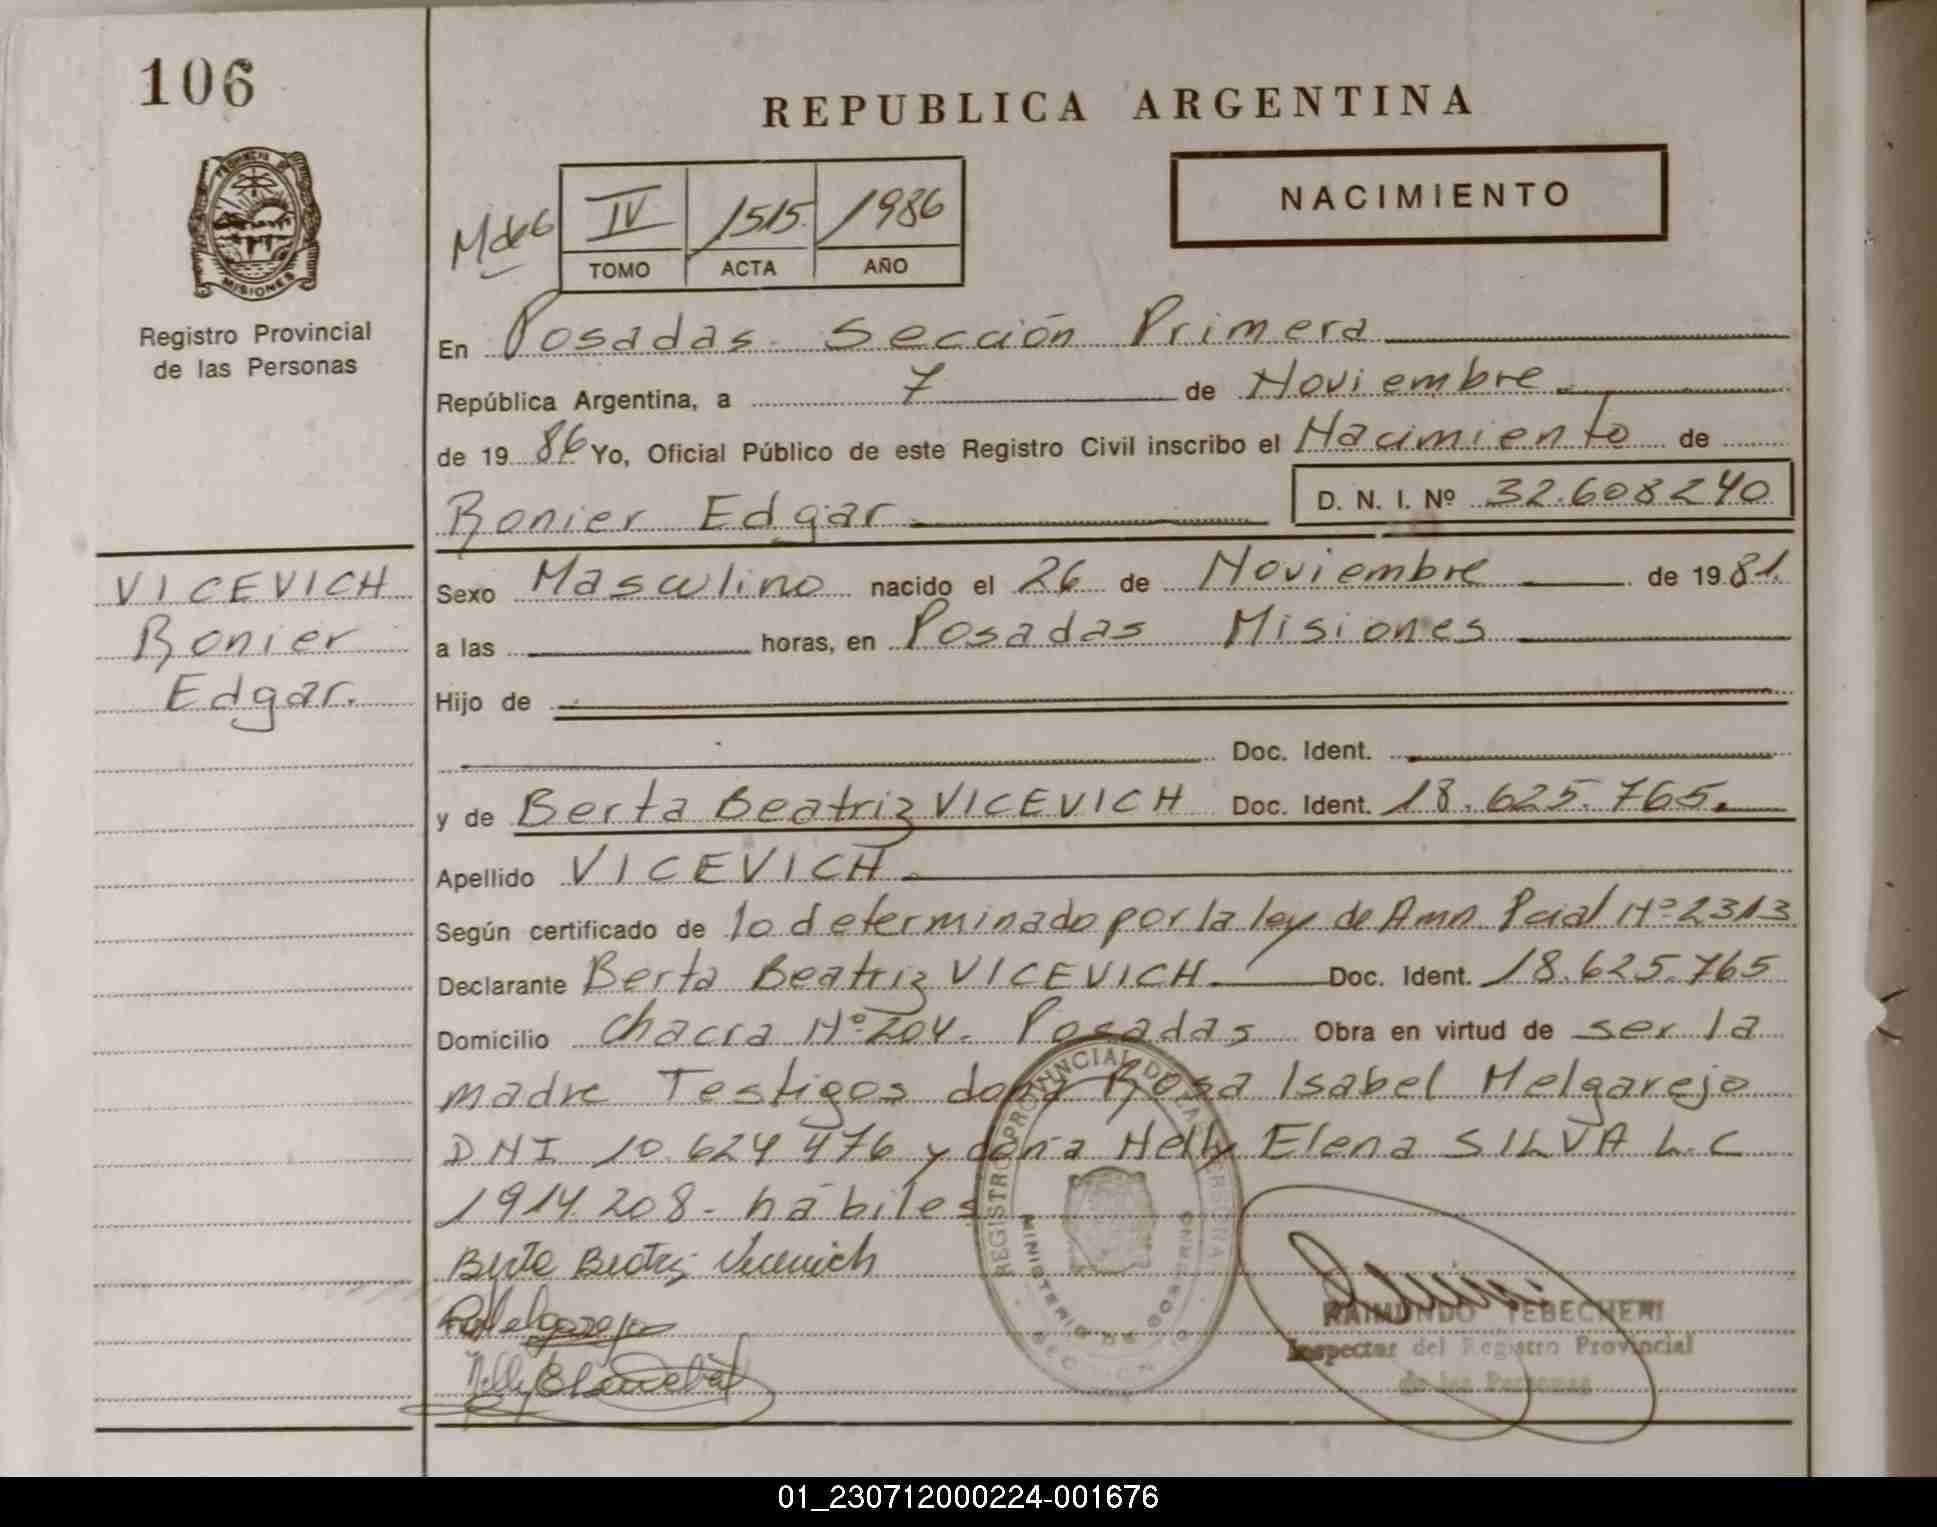 106
REPUBLICA ARGENTINA
NACIMIENTO
PROVINCIA DE MISIONES
Registro Provincial
de las Personas
M de 6
IV 1515 1986
TOMO ACTA AÑO
En Posadas Sección Primera
República Argentina, a 7 de Noviembre
de 1986 Yo, Oficial Público de este Registro Civil inscribo el Nacimiento de
Ronier Edgar
D. N. I. Nº 32.608240
VICEVICH
Ronier
Edgar.
Sexo Masculino nacido el 26 de Noviembre de 1981.
a las horas, en Posadas Misiones
Hijo de
Doc. Ident.
y de Berta Beatriz VICEVICH Doc. Ident. 18.625.765.
Apellido VICEVICH.
Según certificado de lo determinado por la ley de Amn. Pcial Nº 2313
Declarante Berta Beatriz VICEVICH. Doc. Ident. 18.625.765
Domicilio chacra Nº 204. Posadas Obra en virtud de ser la
madre Testigos doña Rosa Isabel Melgarejo
DNI 10.624476 y doña Nelly Elena SILVA L.C
1914.208- hábiles
Berta Beatriz Vicevich
RMelgarejo
Nelly E
REGISTRO PROVINCIAL DE LAS PERSONAS
MINISTERIO DE GOBIERNO
RAIMUNDO TEBECHERI
Inspector del Registro Provincial
de las Personas
01_230712000224-001676